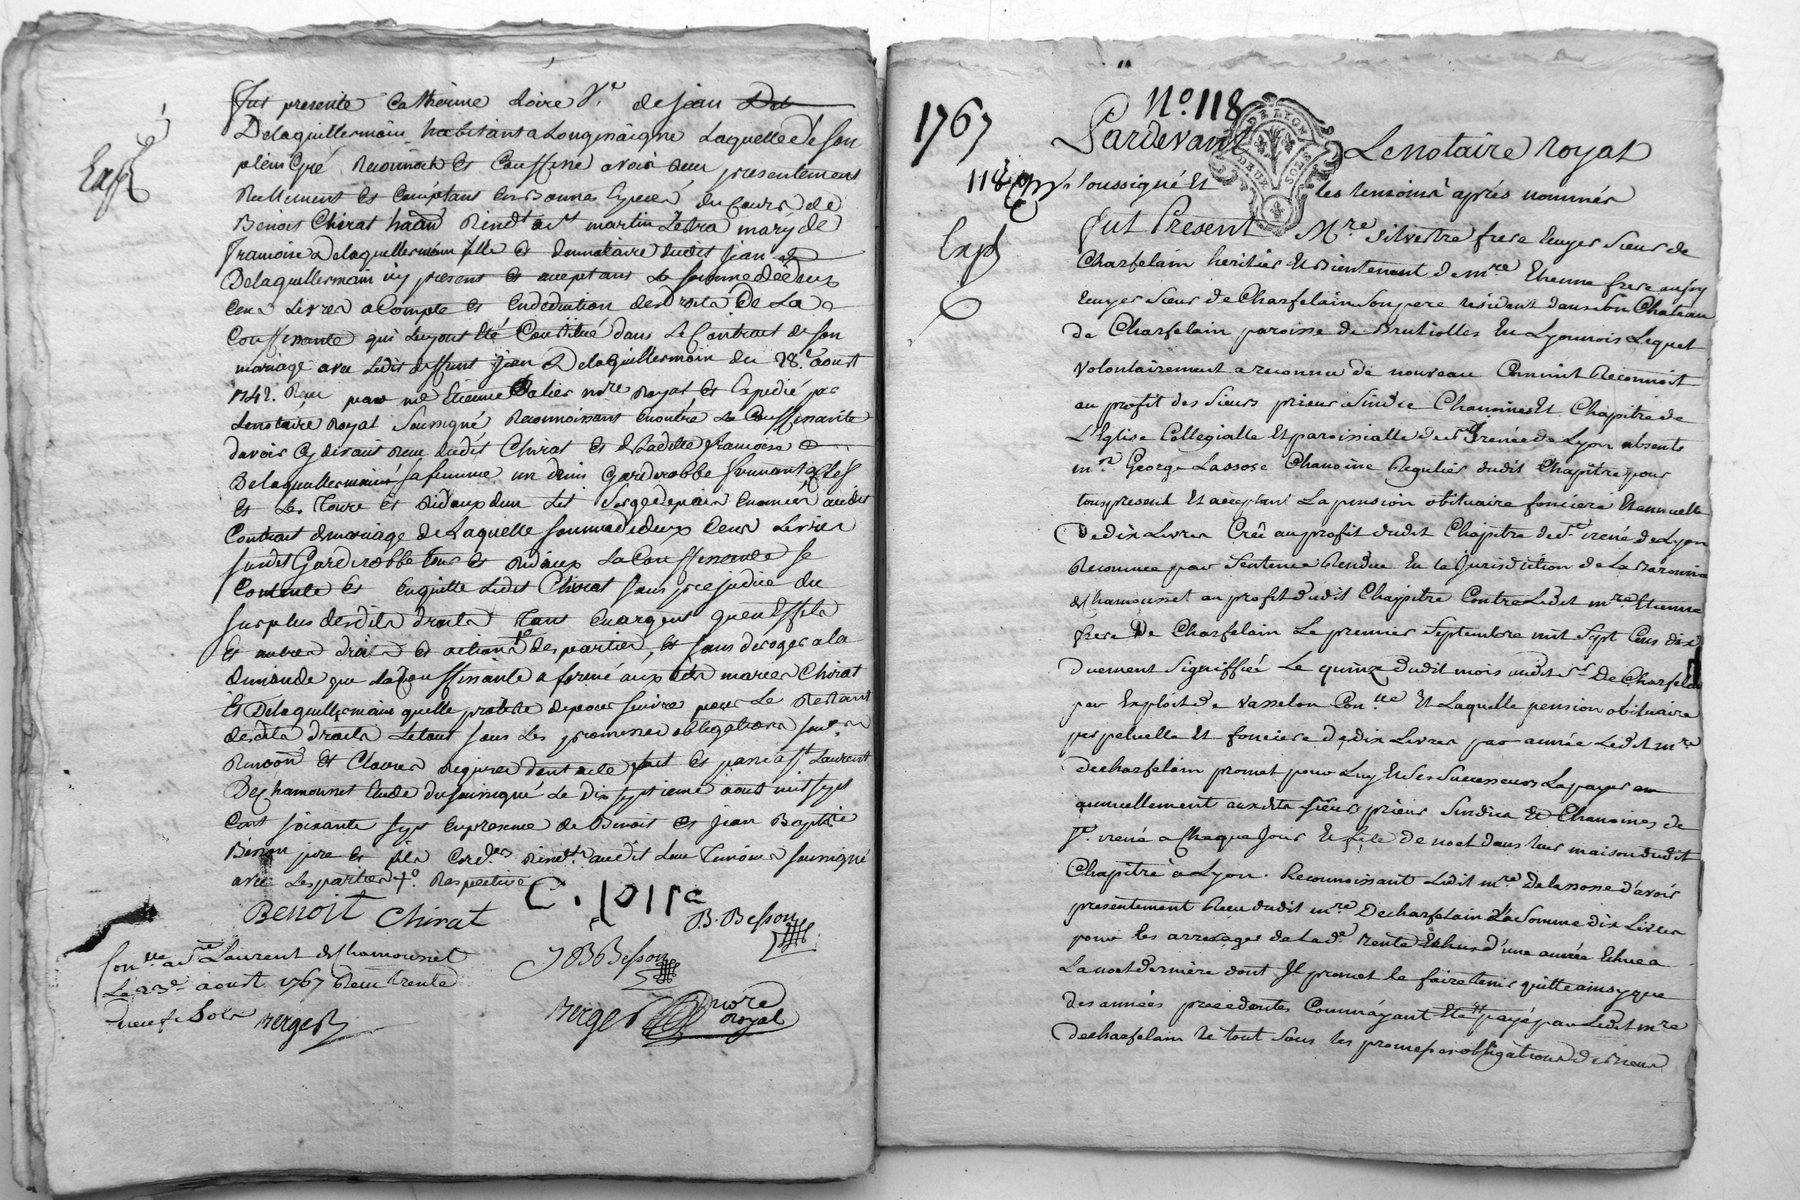 Expé
fut presente Catherine Loire Ve. de jean
Delaquillermain habitant a Longesaigne Laquelle de son
plein Gré Reconnoit et Confesse avoir Reçu presentement
Reellement et comptant en Bonnes Especes du Cours de
Benoit Chirat haant Rierd. St martin Lestra mary de
françoise Delaquillermain fille et donnataire dudit jean
Delaquillermain icy present et acceptant La somme de deux
Cens Livres a Compte et En deduction des droits De La
Confessante qui Luy ont été Constitué dans Le Contrat de son
mariage avec Ledit deffunt jean Delaquillermain du 28e. aoust
1742. Reçu par me Etienne nore Royal et Expedié par
Lenotaire Royal Soussigné Reconnoissant encontre La Confessante
davoir Cy devant reçu dudit Chirat et de Ladite françoise
Delaquillermain sa femme un demi Garderobbe fermant a Clef
Et Les Tour et Rideaux dun Lit Serge
Contrat de mariage de Laquelle somme de deux Cens Livres
susdit Garderobbe tour et Rideaux La Confessante se
Contente Et En quitte Ledit Chirat sans prejudice du
surplus desdits droits tant En argent quen Effets
Et autres droits et actions des parties, et sans deroger a la
demande que La Confessante a formé aux dits mariés Chirat
Et Delaquillermain quelle proteste de poursuivre pour Le Restant
desdits droits Le tout sous Les promesses obligations
Renon. Et Clauses Requises dont acte fait et passé a St. Laurent
De Chamousset Etude du soussigné Le Dix septieme aout mil sept
Cent soixante sept En presence de Benoit et jean Baptiste
Besson pere et fils Cord.ers Resid.ts audit Lieu Temoins soussignés
avec Les parties Respective
BENOIT Chirat C. loire B. Besson
JB Besson
Conlle. a St. Laurent de Chamousset
Le 23e. aoust 1767 Reçu trente
neuf Sols Berger
Berger nore
Royal
No. 118
1767
Pardevant Lenotaire Royal
DE LYON
DEUX SOLS
118
soussigné Et les temoins après nommés
Expé
fut Present Mre. Silvestre frere Ecuyer Sieur de
Charfelain heritier Et Bientenent de mre Etienne frere aussy
Ecuyer Sieur de Charfelain Son pere résident dans son Chateau
de Charfelain paroisse de Brutiolles En Lyonnois Lequel
volontairement a reconnu de nouveau Comme il Reconnoit
au profit des Sieurs prieur Sindic Chanoines Et Chapitre de
L'Eglise Collegialle Et paroissialle de St Irenée de Lyon absents
mre George Lassose Chanoine Regulier dudit Chapitre pour
tous present Et acceptant La pension obituaire fonciere Et annuelle
De dix Livres Creé au profit dudit Chapitre de St. irené de Lyon
Reconnue par Sentence Rendue En la Jurisdiction de La Baronnie
de Chamousset au profit dudit Chapitre Contre Ledit mre. Etienne
frere De Charfelain Le premier Septembre mil Sept Cens dix
Duement Signiffiée Le quinze dudit mois audit Sr. De Charfelain
par Exploit de vasselon Conlle Et Laquelle pension obituaire
perpetuelle Et fonciere de dix Livres par année Ledit mre
de charfelain promet pour Luy Et Ses Successeurs La payer
annuellement auxdits Sieurs prieur Sindic Et Chanoines de
St. irené a Chaque Jour Et fête de noel dans leur maison dudit
Chapitre à Lyon. Reconnoissant Ledit mre. Delassose d'avoir
presentement Reçu dudit mre. Decharfelain La Somme dix Livres
pour les arrerages de La de. rente Echus d'une année Echue a
La noel derniere dont Il promet le faire tenir quitte ainsy que
des années precedentes Comme ayant Eté payé par Ledit mre
decharfelain Le tout Sous les promesses obligations de Biens